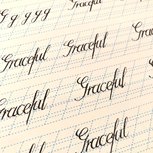 G g g g g Graceful
Graceful Graceful Graceful
Graceful Graceful
Graceful Graceful
Graceful